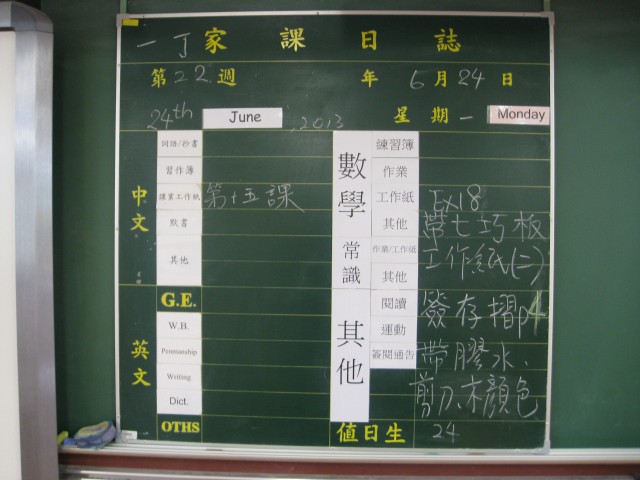 一丁家課日誌
第22週 年 6月24日
24th June, 2013 星期一 Monday
中文
詞語/抄書
習作簿
課業工作紙 第十五課
默書
其他
英文
G.E.
W.B.
Penmanship
Writing
Dict.
OTHS
數學
練習簿
作業
工作紙 Ex18
其他 帶七巧板
常識
作業/工作紙 工作紙(二)
其他
其他
閱讀 簽存摺p4
運動
簽閱通告 帶膠水、
剪刀、木顏色
值日生 24